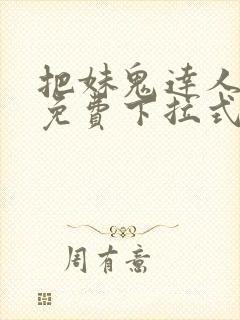 把妹鬼達人
免費下拉式
周有意